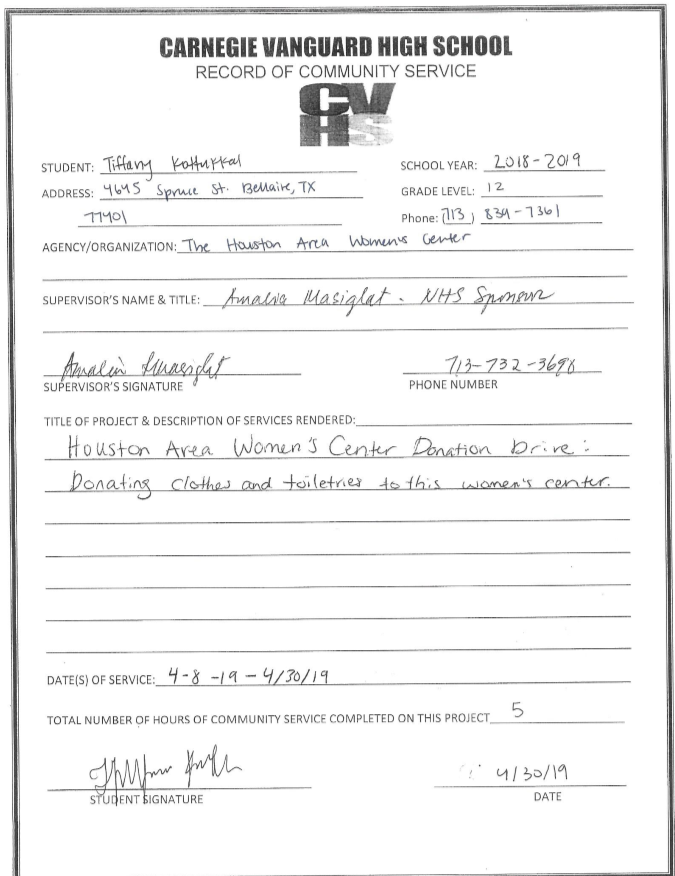 CARNEGIE VANGUARD HIGH SCHOOL
RECORD OF COMMUNITY SERVICE
CV
HS
STUDENT: Tiffany Kattukkal SCHOOL YEAR: 2018-2019
ADDRESS: 4645 Spruce St. Bellaire, TX GRADE LEVEL: 12
77401 Phone: (713) 839-7361
AGENCY/ORGANIZATION: The Houston Area Women's Center
SUPERVISOR'S NAME & TITLE: Amalia Masiglat - NHS Sponsor
SUPERVISOR'S SIGNATURE PHONE NUMBER
TITLE OF PROJECT & DESCRIPTION OF SERVICES RENDERED:
Houston Area Women's Center Donation Drive:
Donating clothes and toiletries to this women's center.
DATE(S) OF SERVICE: 4-8-19-4/30/19
TOTAL NUMBER OF HOURS OF COMMUNITY SERVICE COMPLETED ON THIS PROJECT 5
4/30/19
STUDENT SIGNATURE DATE